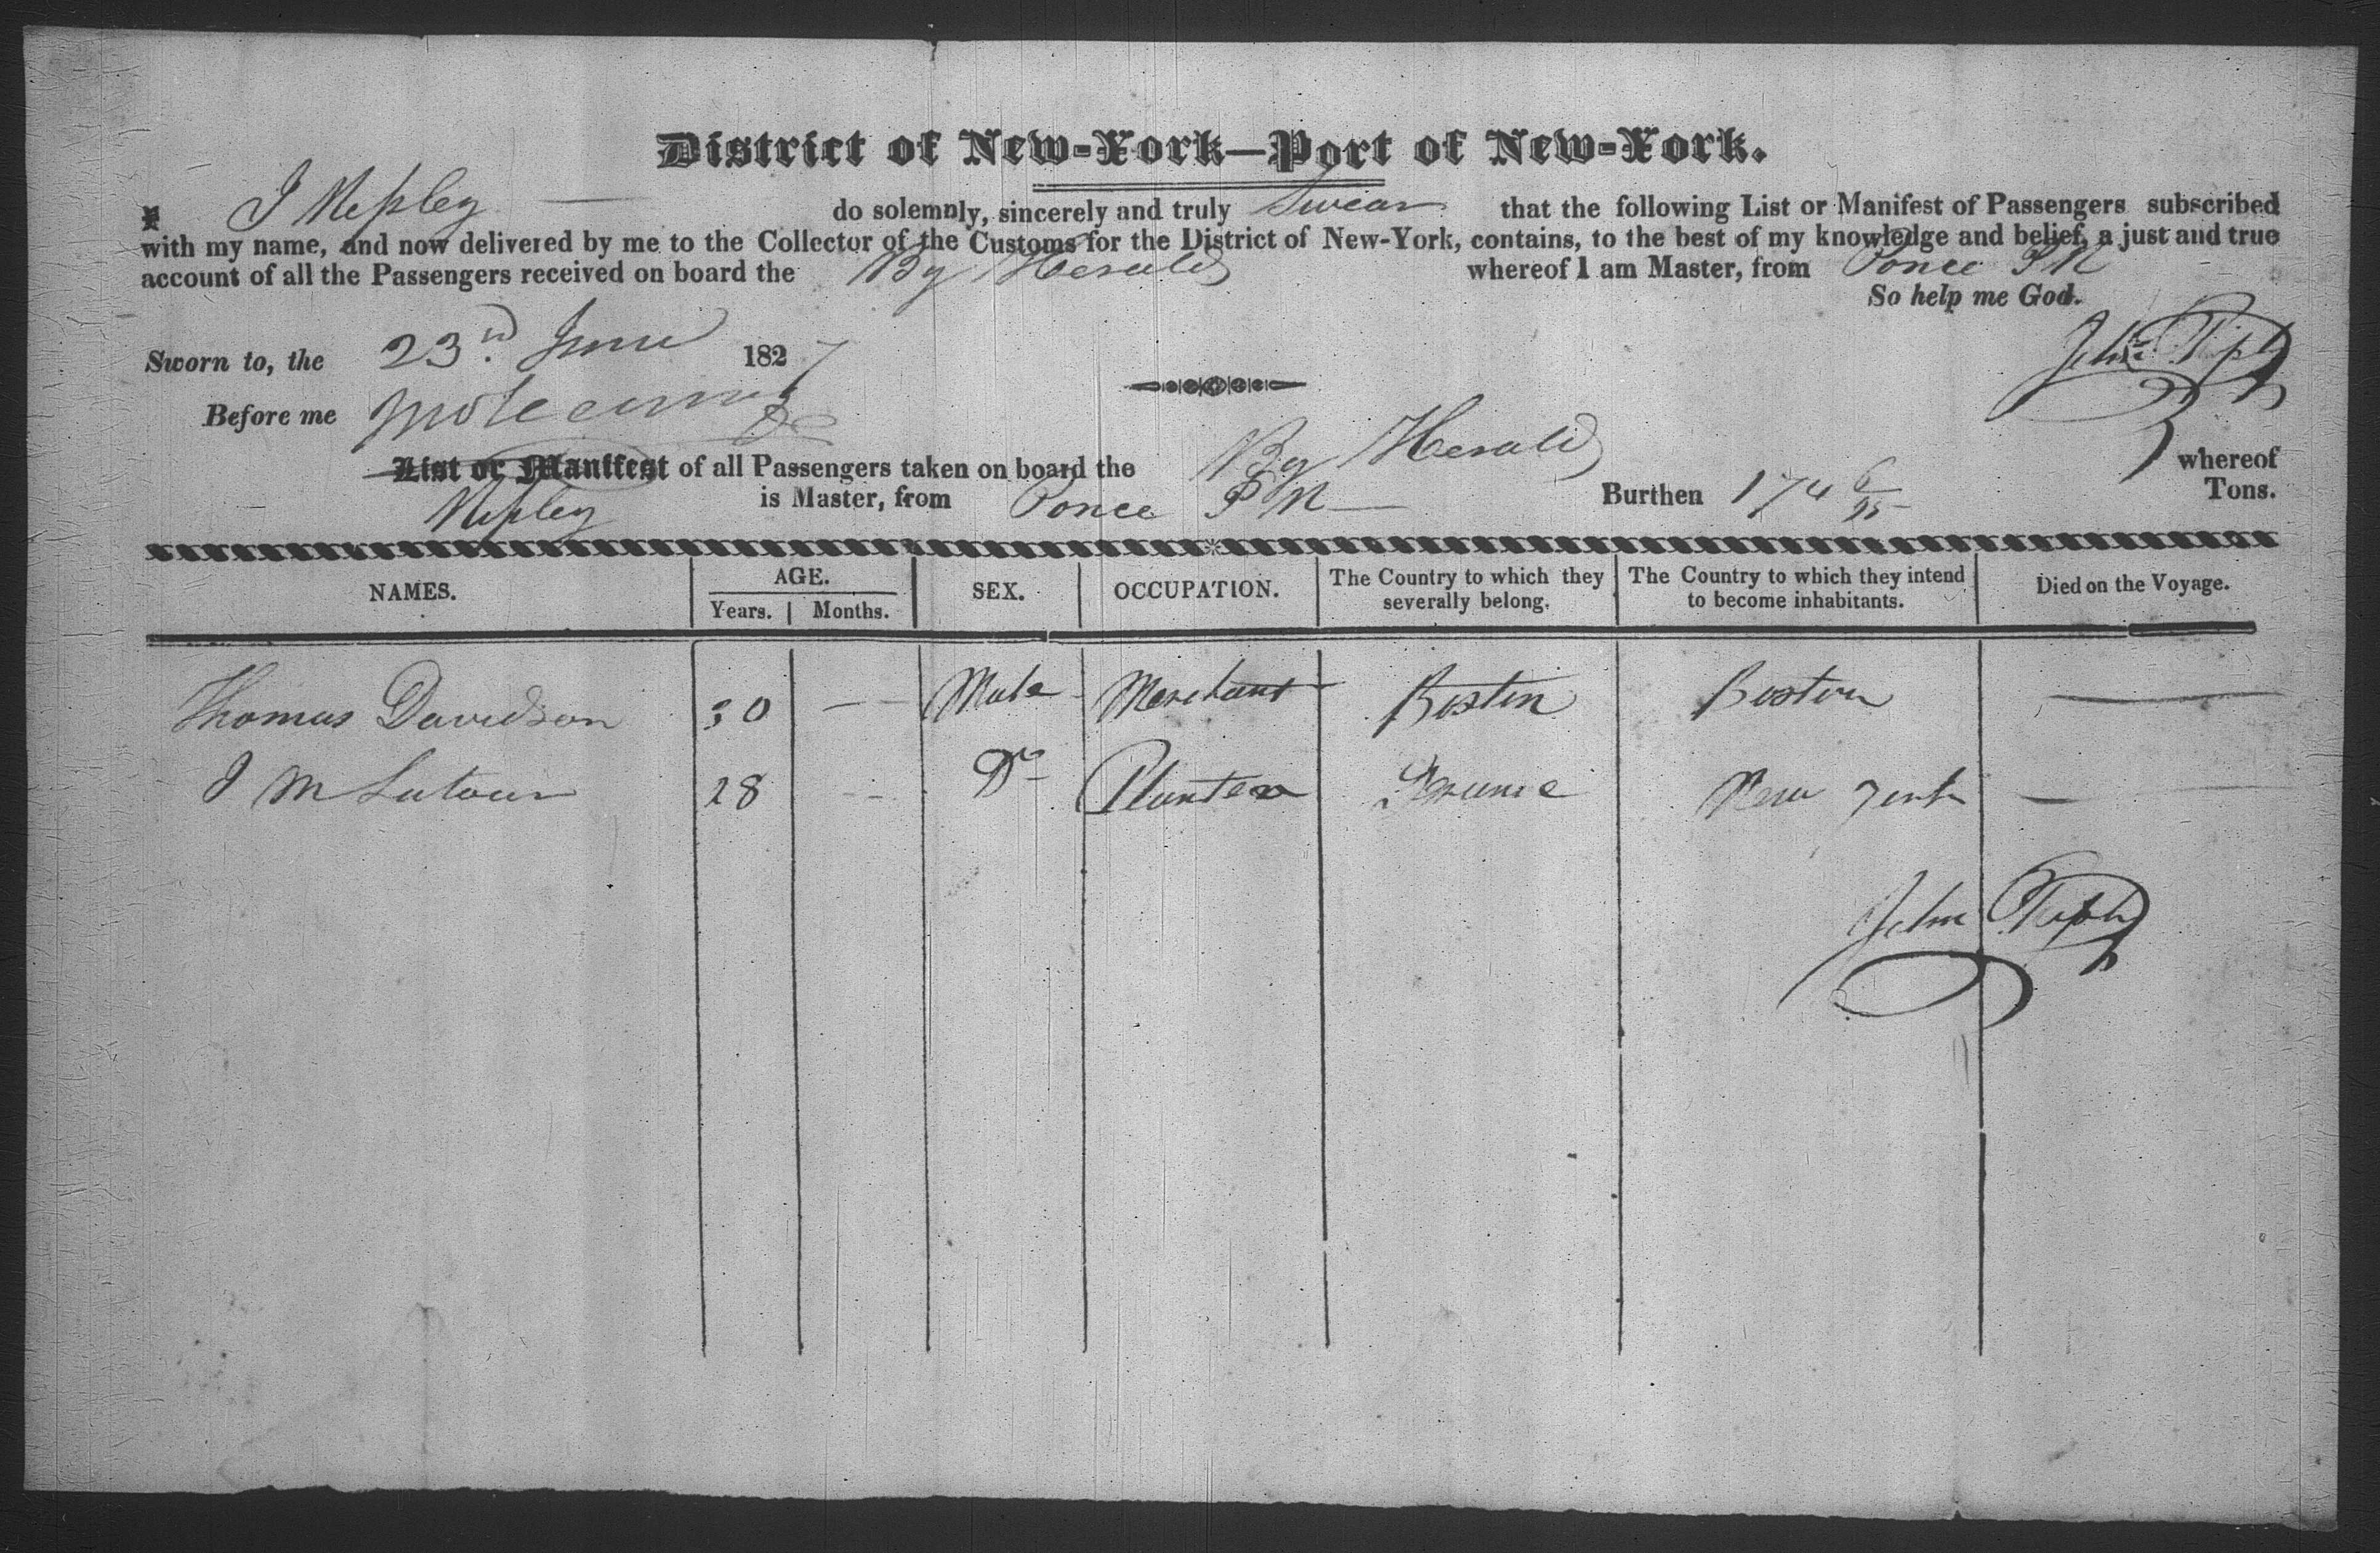 District of New-York—Port of New-York.
I J do solemnly, sincerely and truly Swear that the following List or Manifest of Passengers subscribed
with my name, and now delivered by me to the Collector of the Customs for the District of New-York, contains, to the best of my knowledge and belief, a just and true
account of all the Passengers received on board the Bg Herald whereof I am Master, from Ponce P R
So help me God.
Sworn to, the 23rd June 1827
John
Before me
List or Manifest of all Passengers taken on board the Bg Herald whereof
is Master, from Ponce P R Burthen 174 6/95 Tons.
NAMES. AGE. SEX. OCCUPATION. The Country to which they severally belong. The Country to which they intend to become inhabitants. Died on the Voyage.
Years. Months.
Thomas Davidson 30 — — Male Merchant Boston Boston —
J M Latour 28 - - Do Planter France New York —
John